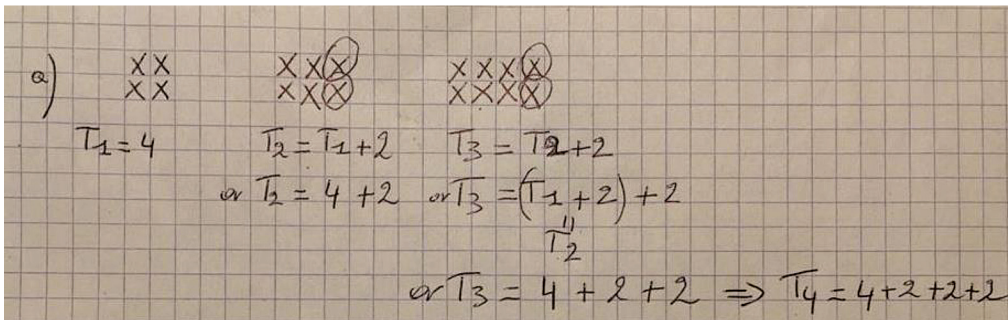 a) XX XXX XXXX
XX XXX XXXX
T1 = 4 T2 = T1 + 2 T3 = T2 + 2
or T2 = 4 + 2 or T3 = (T1 + 2) + 2
"
T2
or T3 = 4 + 2 + 2 ⇒ T4 = 4 + 2 + 2 + 2